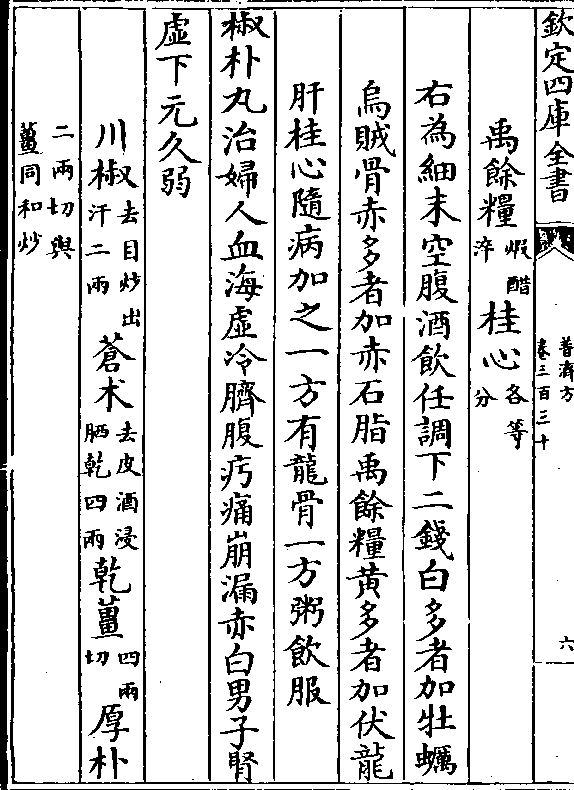 欽定四庫全書
普濟方
卷三百三十
六
禹餘糧煆醋淬桂心各等分
右為細末空腹酒飲任調下二錢白多者加牡蠣
烏賊骨赤多者加赤石脂禹餘糧黃多者加伏龍
肝桂心隨病加之一方有龍骨一方粥飲服
椒朴丸治婦人血海虛冷臍腹㽲痛崩漏赤白男子腎
虛下元久弱
川椒去目炒出汗二兩蒼朮去皮酒浸晒乾四兩乾薑四兩切厚朴
二兩切與薑同和炒